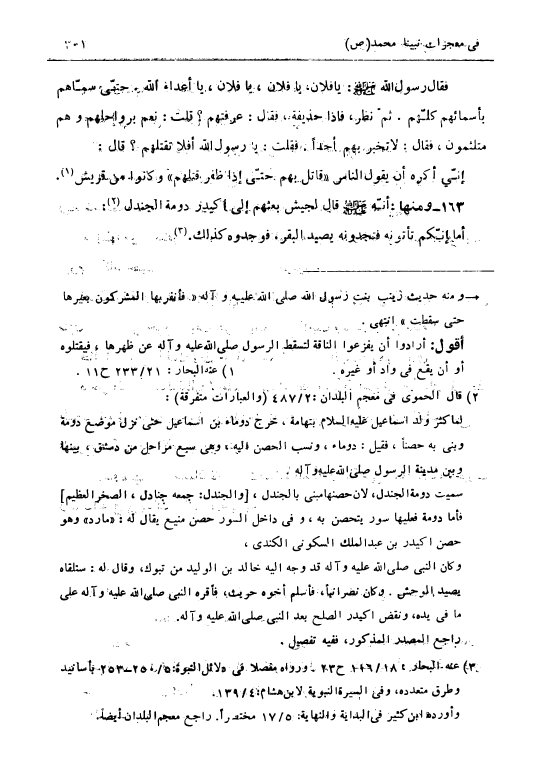 فى معجزات نبينا محمد (ص) ١٠١
فقال رسول الله ﷺ : يا فلان، يا فلان ، يا فلان ، يا أعداء الله . حتّى سمّاهم
بأسمائهم كلّهم . ثمّ نظر، فاذا حذيفة، فقال : عرفتهم ؟ قلت : نعم برواحلهم و هم
متلثمون ، فقال : لا تخبر بهم أحداً . فقلت : يا رسول الله أفلا تقتلهم ؟ قال :
إنّي أكره أن يقول الناس «قاتل بهم حتّى إذا ظفر قتلهم» و كانوا من قريش (١).
١٦٣ــ و منها : أنّه ﷺ قال لجيش بعثهم إلى أكيدر دومة الجندل (٢):
أما إنّكم تأتونه فتجدونه يصيد البقر، فوجدوه كذلك.(٣)
→ و منه حديث زينب بنت رسول الله صلى الله عليه و آله « فأنفر بها المشركون بعيرها
حتى سقطت » إنتهى .
أقول: أرادوا أن يفزعوا الناقة لتسقط الرسول صلى الله عليه وآله عن ظهرها ، فيقتلوه
أو أن يقع فى واد أو غيره . ١) عنه البحار : ٢٣٣/٢١ ح١١ .
٢) قال الحموى فى معجم البلدان: ٤٨٧/٢ (والعبارات متفرقة) :
لما كثر ولد اسماعيل عليه السلام بتهامة ، خرج دوماء بن اسماعيل حتى نزل موضع دومة
وبنى به حصناً ، فقيل : دوماء ، ونسب الحصن اليه، وهى سبع مراحل من دمشق ، بينها
وبين مدينة الرسول صلى الله عليه وآله .
سميت دومة الجندل، لان حصنها مبنى بالجندل ، [والجندل: جمعه جنادل ، الصخر العظيم]
فأما دومة فعليها سور يتحصن به ، و فى داخل السور حصن منيع يقال له : «مارد» وهو
حصن اكيدر بن عبدالملك السكونى الكندى ،
وكان النبى صلى الله عليه و آله قد وجه اليه خالد بن الوليد من تبوك، وقال له : ستلقاه
يصيد الوحش . وكان نصرانياً، فأسلم أخوه حريث، فأقره النبى صلى الله عليه وآله على
ما فى يده، ونقض اكيدر الصلح بعد النبى صلى الله عليه وآله.
راجع المصدر المذكور، ففيه تفصيل .
٣) عنه البحار : ١١٦/١٨ ح٢٣ . ورواه مفصلا فى دلائل النبوة: ٢٥٠/٥ــ٢٥٣ بأسانيد
وطرق متعدده، وفى السيرة النبوية لابن هشام: ١٣٩/٤.
وأورده ابن كثير فى البداية والنهاية: ١٧/٥ مختصراً. راجع معجم البلدان أيضاً.